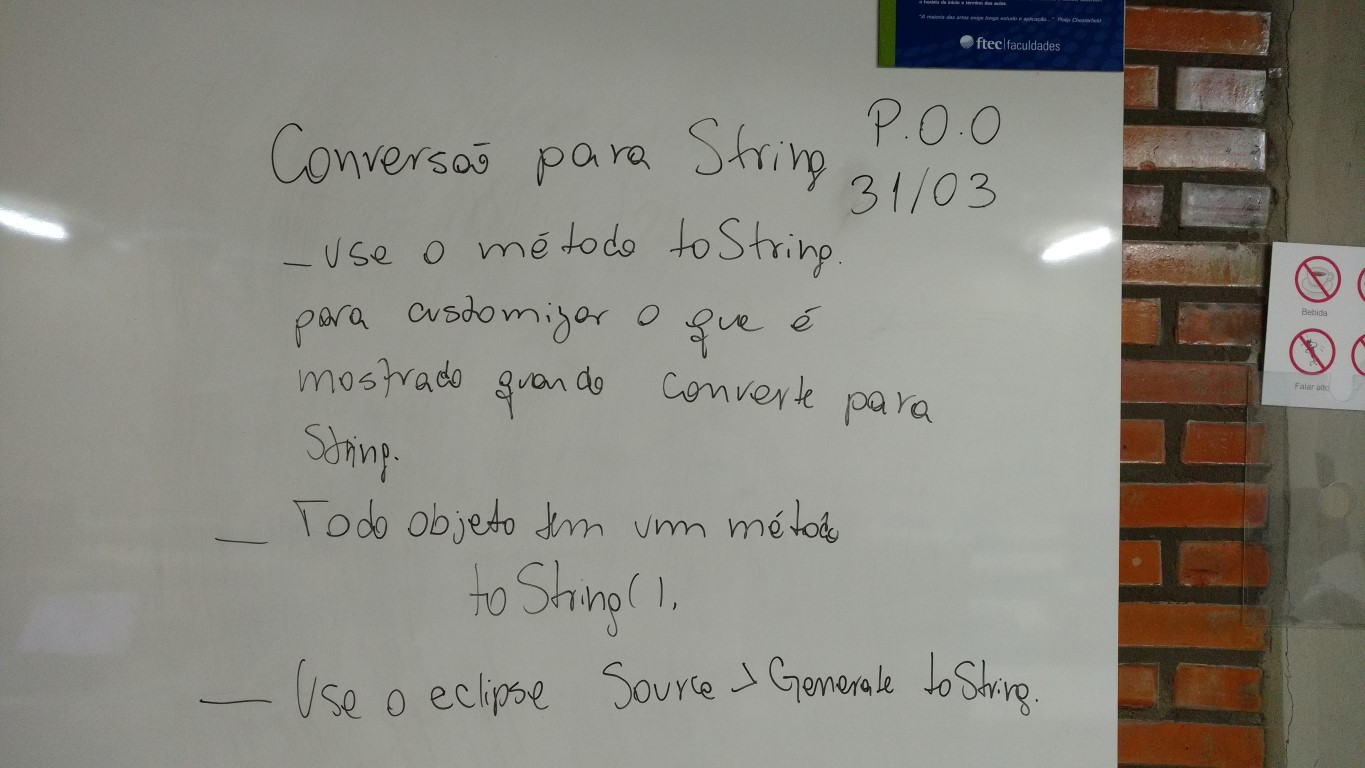 o horário de início e término das aulas.
"A maioria das artes exige longo estudo e aplicação..." Philip Chesterfield
ftec|faculdades
Conversão para String
P.O.O
31/03
- Use o método toString.
para customizar o que é
mostrado quando converte para
String.
- Todo objeto tem um método
toString().
- Use o eclipse Source > Generate toString.
Bebida
Falar alto